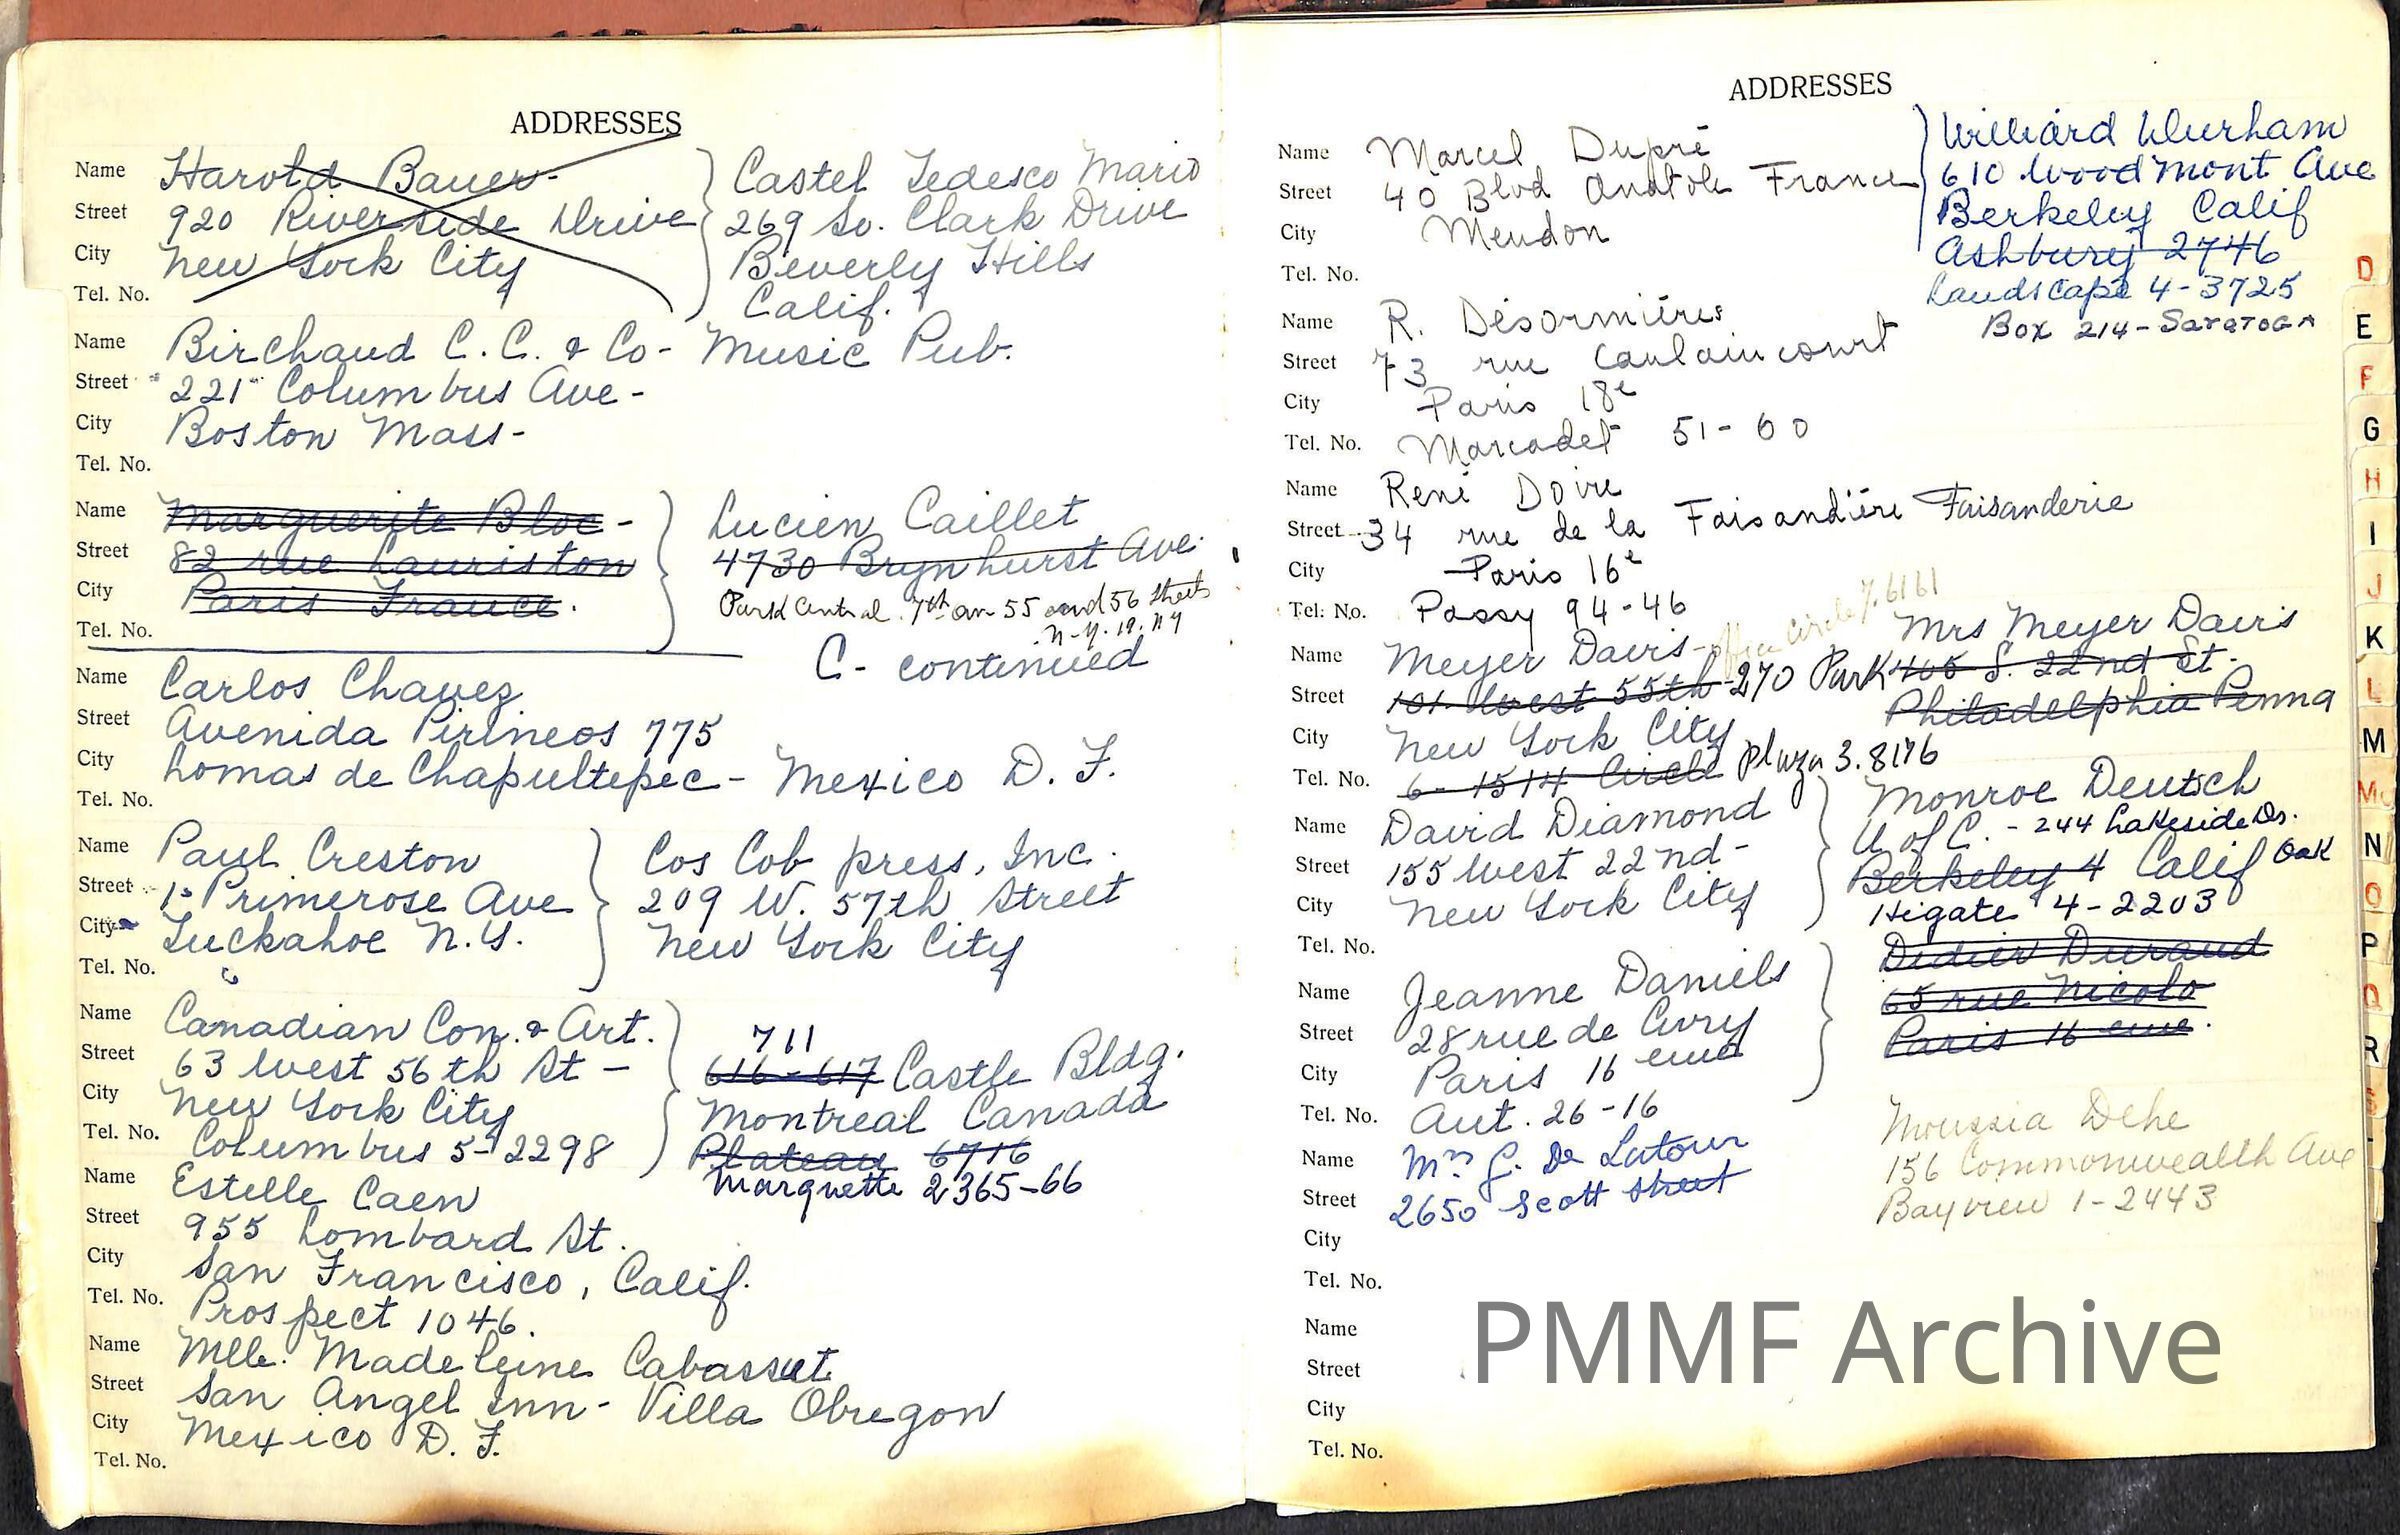 ADDRESSES
Name Harold Bauer-
Street 920 Riverside Drive
City New York City
Tel. No.
Castel Tedesco Mario
269 So. Clark Drive
Beverly Hills
Calif.
Name Birchaud C. C. & Co- Music Pub.
Street "221" Columbus Ave-
City Boston Mass-
Tel. No.
Name Marguerite Bloc-
Street 82 rue Lauriston
City Paris France.
Tel. No.
Lucien Caillet
4730 Brynhurst Ave.
Park Central. 7th av 55 and 56 Streets
N-Y. 19. NY
C- continued
Name Carlos Chavez
Street Avenida Pirineos 775
City Lomas de Chapultepec- Mexico D. F.
Tel. No.
Name Paul Creston
Street Primerose Ave
City Tuckahoe N.Y.
Tel. No.
Cos Cob press, Inc.
209 W. 57th Street
New York City
Name Canadian Con. & Art.
Street 63 West 56th St-
City New York City
Tel. No. Columbus 5-2298
711
616-617 Castle Bldg.
Montreal Canada
Plateau 6716
Marquette 2365-66
Name Estelle Caen
Street 955 Lombard St.
City San Francisco, Calif.
Tel. No. Prospect 1046.
Name Mlle. Madeleine Cabasset
Street San Angel Inn- Villa Obregon
City Mexico D. F.
Tel. No.
ADDRESSES
Name Marcel Dupré
Street 40 Blvd Anatole France
City Meudon
Tel. No.
Williard Durham
610 Woodmont Ave
Berkeley Calif
Ashbury 2746
Landscape 4-3725
Box 214-Saratoga
Name R. Désormières
Street 73 rue Caulaincourt
City Paris 18e
Tel. No. Marcadet 51-60
Name René Doire
Street 34 rue de la Faisandière Faisanderie
City Paris 16e
Tel. No. Passy 94-46
office Circle 7.6161
Name Meyer Davis-
Street 101 West 55th-270 Park
City New York City
Tel. No. 6-1514 Circle Plaza 3.8176
Mrs Meyer Davis
405 S. 22nd St.
Philadelphia Penna
Name David Diamond
Street 155 West 22nd-
City New York City
Tel. No.
Monroe Deutsch
U of C. - 244 Lakeside Dr.
Berkeley 4 Calif Oak
Higate 4-2203
Name Jeanne Daniels
Street 28 rue de Civry
City Paris 16 eme
Tel. No. Aut. 26-16
Didier Duraud
65 rue Nicolo
Paris 16 eme.
Name Mrs G. De Latour
Street 2650 Scott Street
City
Tel. No.
Moussia Dehe
156 Commonwealth Ave
Bayview 1-2443
Name
Street
City
Tel. No.
D
E
F
G
H
I
J
K
L
M
Mc
N
O
P
Q
R
S
T
PMMF Archive